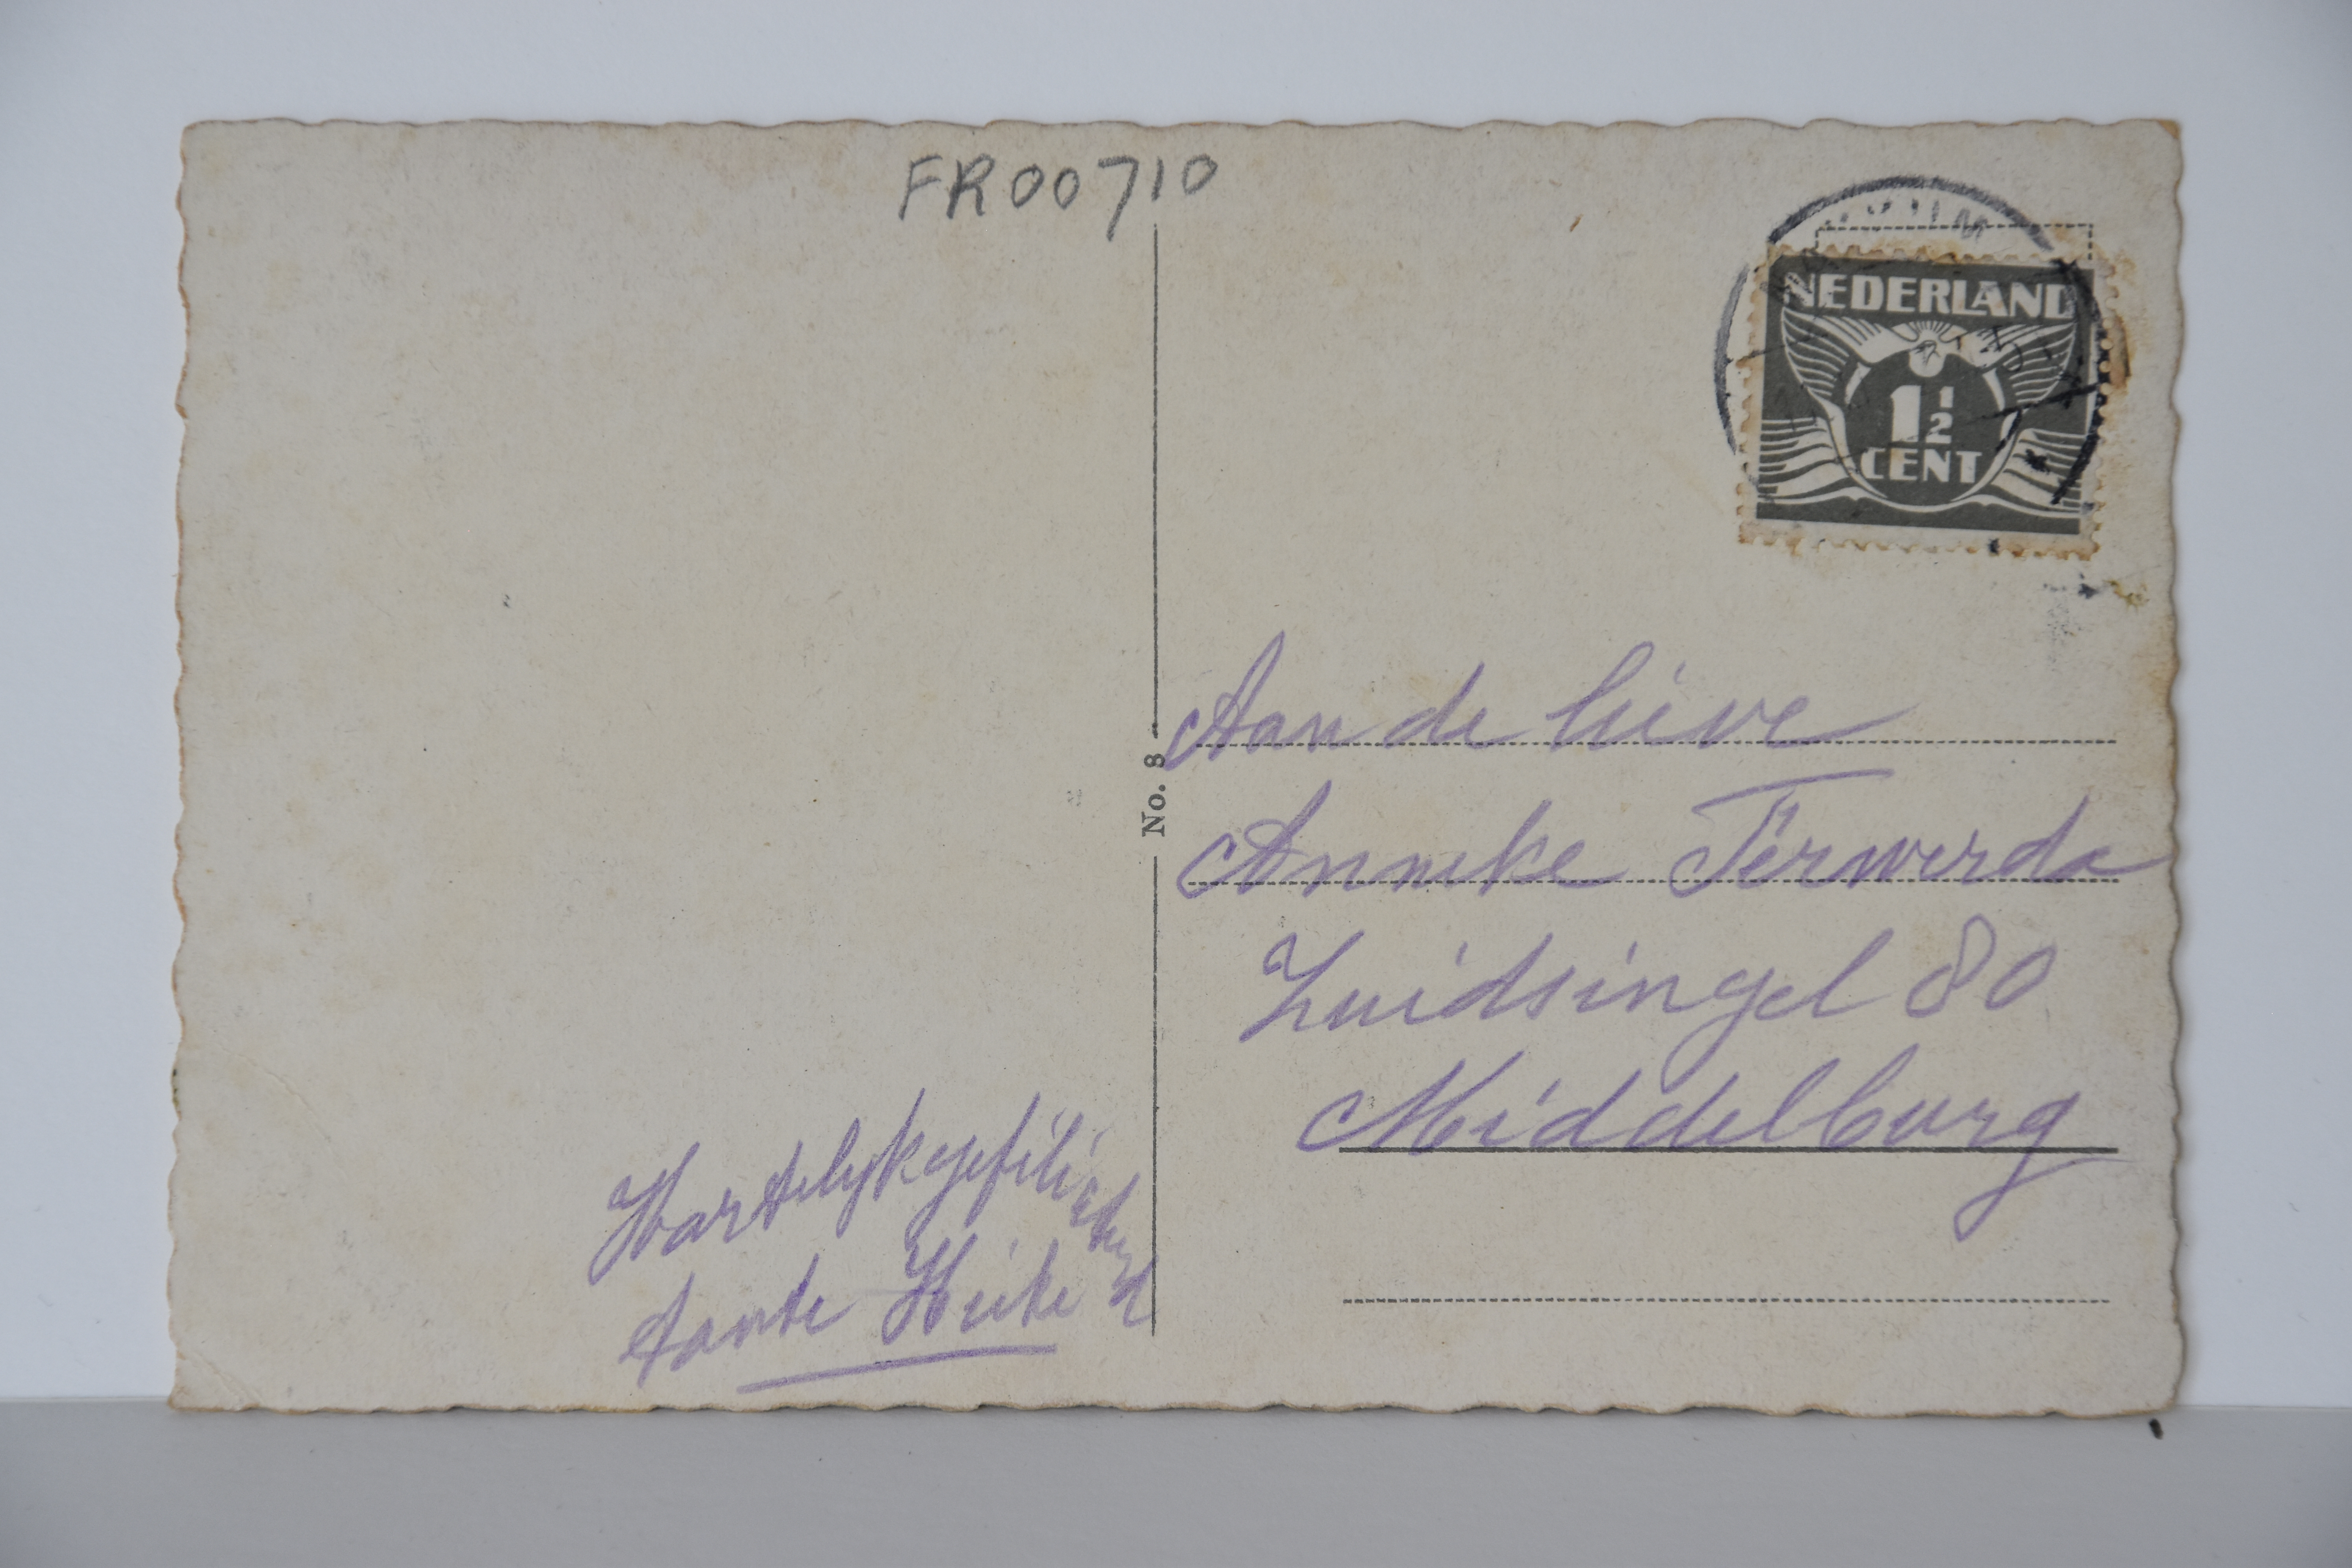 FR00710
NEDERLAND
1 1/2
CENT
No. 8
Aan de lieve
Anneke Terwerda
Zuidsingel 80
Middelburg
Hartelyk gefiliciteerd
tante Hieke